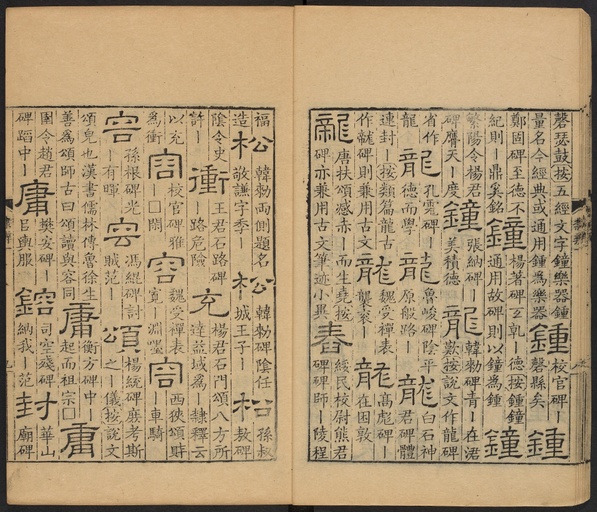 磬瑟鼓按五經文字鐘樂器鍾
量名今經典或通用鍾爲樂器
鍾
校官碑—
磬縣矣
鍾
鄭固碑至德不
紀則—鼎奚銘
鍾
楊著碑立乹—德按鍾鐘
通用故碑則以鐘爲鍾
鐘
繁陽令楊君
碑膺天—度
鐘
張納碑—
美積德
龍
韓勑碑青—在涒
歎按說文作龍碑
省作
龍
龍
孔龢碑—
德而學
龍
魯峻碑陰平
原般路—
龍
白石神
君碑體
連封—按類篇龍古
作竜碑則兼用古文
龍
魏受禪表
龔袞—
龍
高彪碑—
在困敦
龍
唐扶頌感赤—而生堯按
碑亦兼用古文筆迹小異
舂
綏民校尉熊君
碑碑師—陵程
福
造
松
韓勑兩側題名
敬謙字季—
松
韓勑碑陰任
城王子—
松
孫叔
敖碑
陰令史
許—
衝
王君石路碑
—路危險
充
楊君石門頌八方所
達益域爲—隸釋云
以充
爲衝
容
校官碑雅
—□閑
容
魏受禪表
寬—淵嘿
容
西狹頌財
—車騎
容
孫根碑光
—有暉
容
馮緄碑討
賊范—
頌
楊統碑庶考斯
之—儀按說文
頌皃也漢書儒林傳魯徐生
善爲頌師古曰頌讀與容同
庸
衡方碑中—
起而祖宗□
庸
圉令趙君
碑蹈中—
庸
樊安碑—
㠯輿服
鎔
司空殘碑
納我—范
封
華山
廟碑